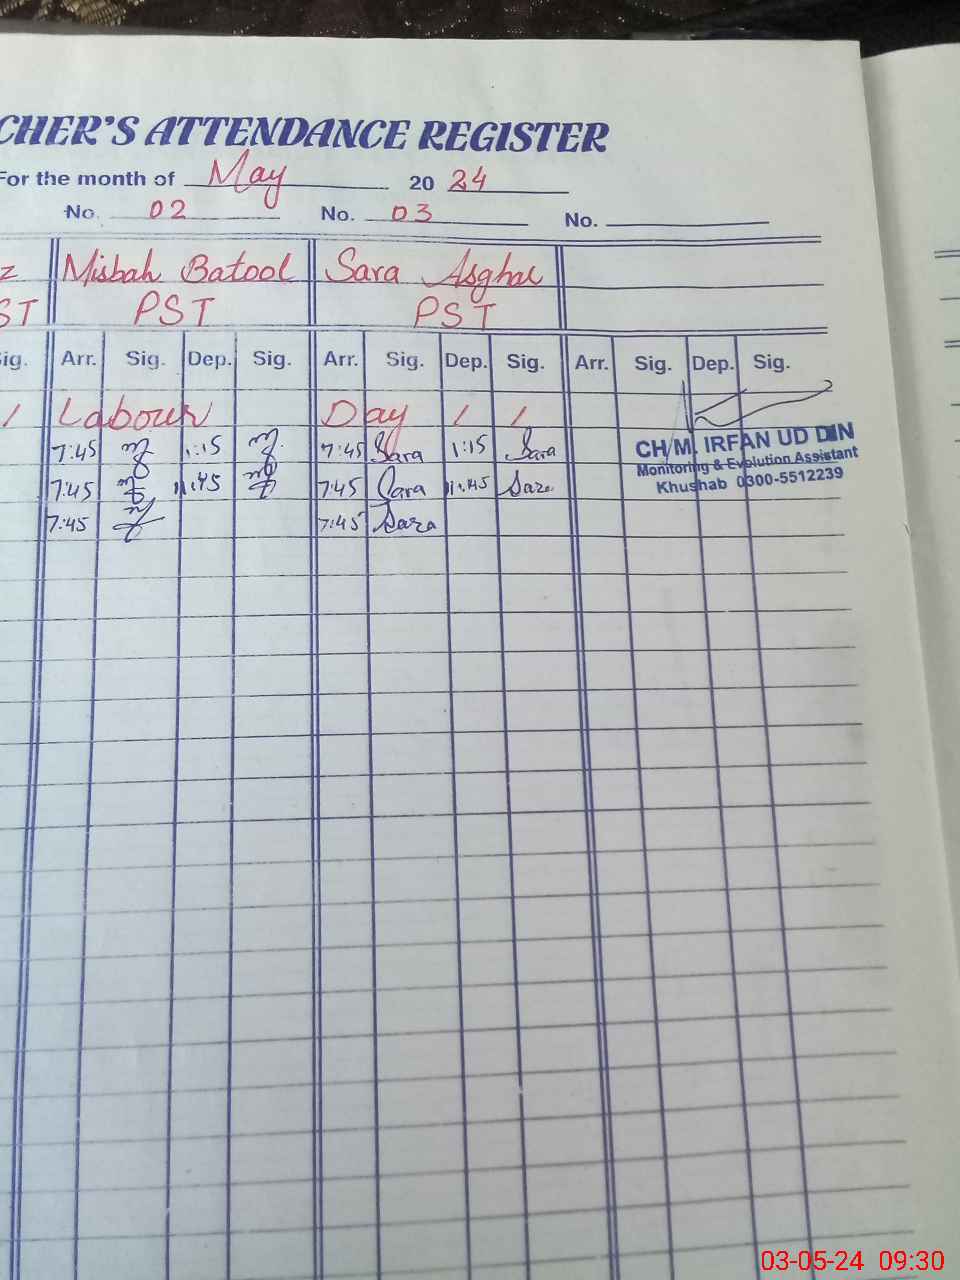 CHER'S ATTENDANCE REGISTER
For the month of May 2024
No. 02 No. 03 No.
z Misbah Batool Sara Asghar
ST PST PST
Sig. Arr. Sig. Dep. Sig. Arr. Sig. Dep. Sig. Arr. Sig. Dep. Sig.
/ Labour Day / /
7:45 1:15 7:45 Sara 1:15 Sara
7:45 11:45 7:45 Sara 11:45 Sara
7:45 7:45 Sara
CH/M. IRFAN UD DIN
Monitoring & Evolution Assistant
Khushab 0300-5512239
03-05-24 09:30